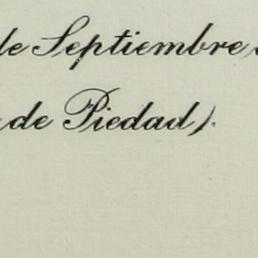 de Septiembre
de Piedad).